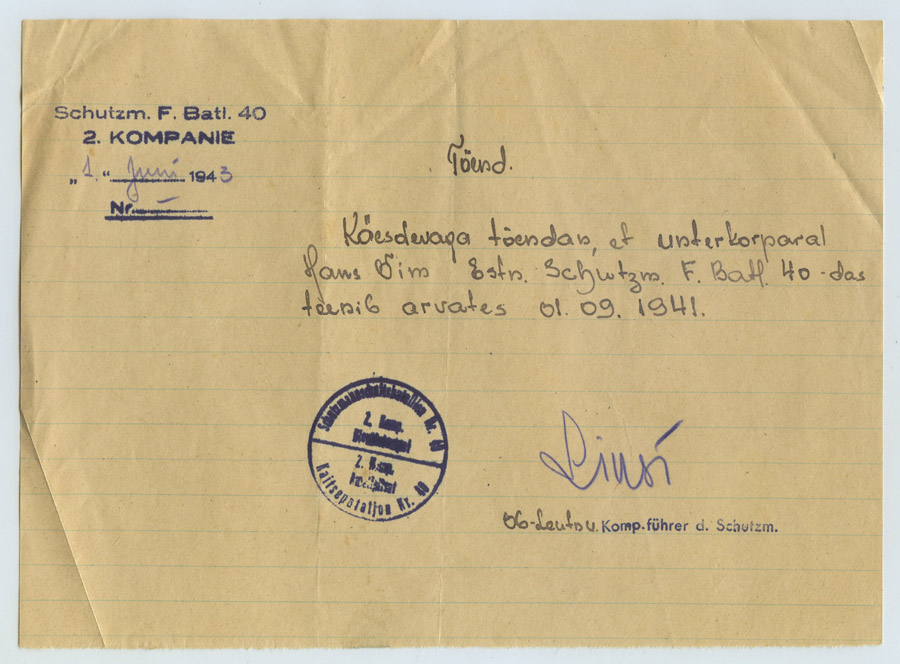 Schutzm. F. Batl. 40
2. KOMPANIE
„1.“ Juni 1943
Nr. —
Tõend.
Käesdevaga tõendan, et unterkorparal
Hans Õim Estn. Schutzm. F. Batl. 40-das
teenib arvates 01.09.1941.
Schutzmannschaftsbataillon Nr. 40
2. Komp.
2. Komp.
Kaitsepataljon Nr. 40
Ob-Leutn u. Komp.führer d. Schutzm.